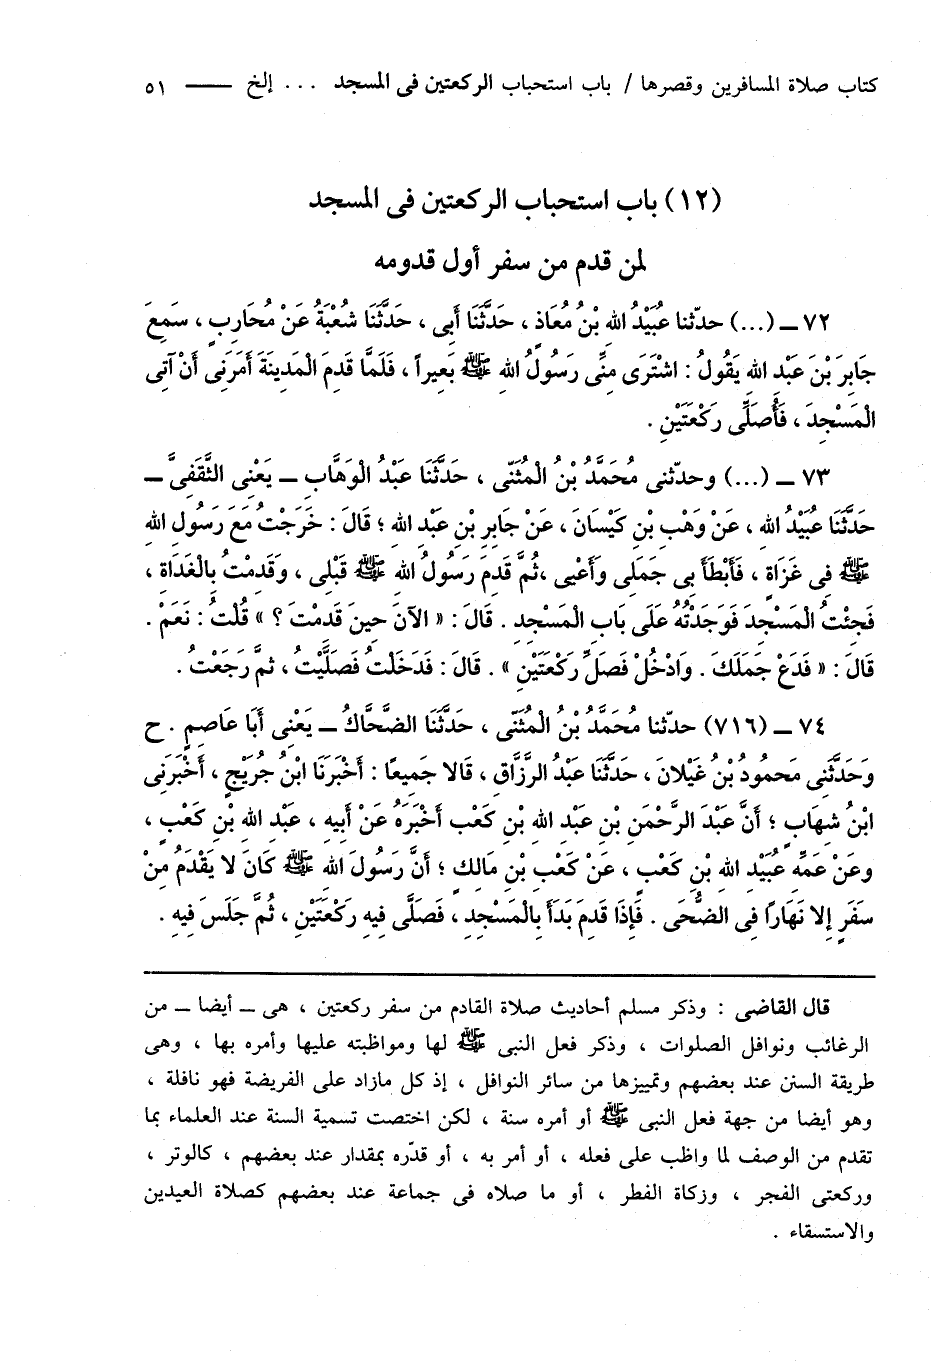 كتاب صلاة المسافرين وقصرها / باب استحباب الركعتين فى المسجد ... إلخ ـــــ ٥١
(١٢) باب استحباب الركعتين فى المسجد
لمن قدم من سفر أول قدومه
٧٢ ــ (...) حدّثنا عُبَيْدُ الله بْنُ مُعَاذٍ ، حَدَّثَنَا أَبِى ، حَدَّثَنَا شُعْبَةُ عَنْ مُحَارِبٍ ، سَمِعَ
جَابِرَ بْنَ عَبْدِ اللهِ يَقُولُ : اشْتَرَى مِنِّى رَسُولُ اللهِ ﷺ بَعِيراً ، فَلَمَّا قَدِمَ الْمَدِينَةَ أَمَرَنِى أَنْ آتِىَ
الْمَسْجِدَ ، فَأُصَلِّى رَكْعَتَيْنِ .
٧٣ ــ (...) وحدّثنى مُحَمَّدُ بْنُ الْمُثَنَّى ، حَدَّثَنَا عَبْدُ الْوَهَّابِ ــ يَعْنِى الثَّقَفِىَّ ــ
حَدَّثَنَا عُبَيْدُ اللهِ ، عَنْ وَهْبِ بْنِ كَيْسَانَ ، عَنْ جَابِرِ بْنِ عَبْدِ اللهِ ؛ قَالَ : خَرَجْتُ مَعَ رَسُولِ اللهِ
ﷺ فِى غَزَاةٍ ، فَأَبْطَأَ بِى جَمَلِى وَأَعْيى ،ثُمَّ قَدِمَ رَسُولُ اللهِ ﷺ قَبْلِى ، وَقَدِمْتُ بِالْغَدَاةِ ،
فَجِئْتُ الْمَسْجِدَ فَوَجَدْتُهُ عَلَى بَابِ الْمَسْجِدِ . قَالَ : « الآنَ حِينَ قَدِمْتَ ؟ » قُلْتُ : نَعَمْ .
قَالَ : « فَدَعْ جَمَلَكَ . وَادْخُلْ فَصَلِّ رَكْعَتَيْنِ » . قَالَ : فَدَخَلْتُ فَصَلَّيْتُ ، ثُمَّ رَجَعْتُ .
٧٤ ــ (٧١٦) حدّثنا مُحَمَّدُ بْنُ الْمُثَنَّى ، حَدَّثَنَا الضَّحَّاكُ ــ يَعْنِى أَبَا عَاصِمٍ . ح
وَحَدَّثَنِى مَحْمُودُ بْنُ غَيْلانَ ، حَدَّثَنَا عَبْدُ الرَّزَّاقِ ، قَالا جَمِيعًا : أَخْبَرَنَا ابْنُ جُرَيْجٍ ، أَخْبَرَنِى
ابْنُ شِهَابٍ ؛ أَنَّ عَبْدَ الرَّحْمَنِ بْنِ عَبْدِ اللهِ بْنِ كَعْبٍ أَخْبَرَهُ عَنْ أَبِيهِ ، عَبْدِ اللهِ بْنِ كَعْبٍ ،
وَعَنْ عَمِّهِ عُبَيْدِ اللهِ بْنِ كَعْبٍ ، عَنْ كَعْبِ بْنِ مَالِكٍ ؛ أَنَّ رَسُولَ اللهِ ﷺ كَانَ لا يَقْدَمُ مِنْ
سَفَرٍ إِلا نَهَارًا فِى الضُّحَى . فَإِذَا قَدِمَ بَدَأَ بِالْمَسْجِدِ ، فَصَلَّى فِيهِ رَكْعَتَيْنِ ، ثُمَّ جَلَسَ فِيهِ .
قال القاضى : وذكر مسلم أحاديث صلاة القادم من سفر ركعتين ، هى ــ أيضا ــ من
الرغائب ونوافل الصلوات ، وذكر فعل النبى ﷺ لها ومواظبته عليها وأمره بها ، وهى
طريقة السنن عند بعضهم وتمييزها من سائر النوافل ، إذ كل مازاد على الفريضة فهو نافلة ،
وهو أيضا من جهة فعل النبى ﷺ أو أمره سنة ، لكن اختصت تسمية السنة عند العلماء بما
تقدم من الوصف لما واظب على فعله ، أو أمر به ، أو قدّره بمقدار عند بعضهم ، كالوتر ،
وركعتى الفجر ، وزكاة الفطر ، أو ما صلاه فى جماعة عند بعضهم كصلاة العيدين
والاستسقاء .